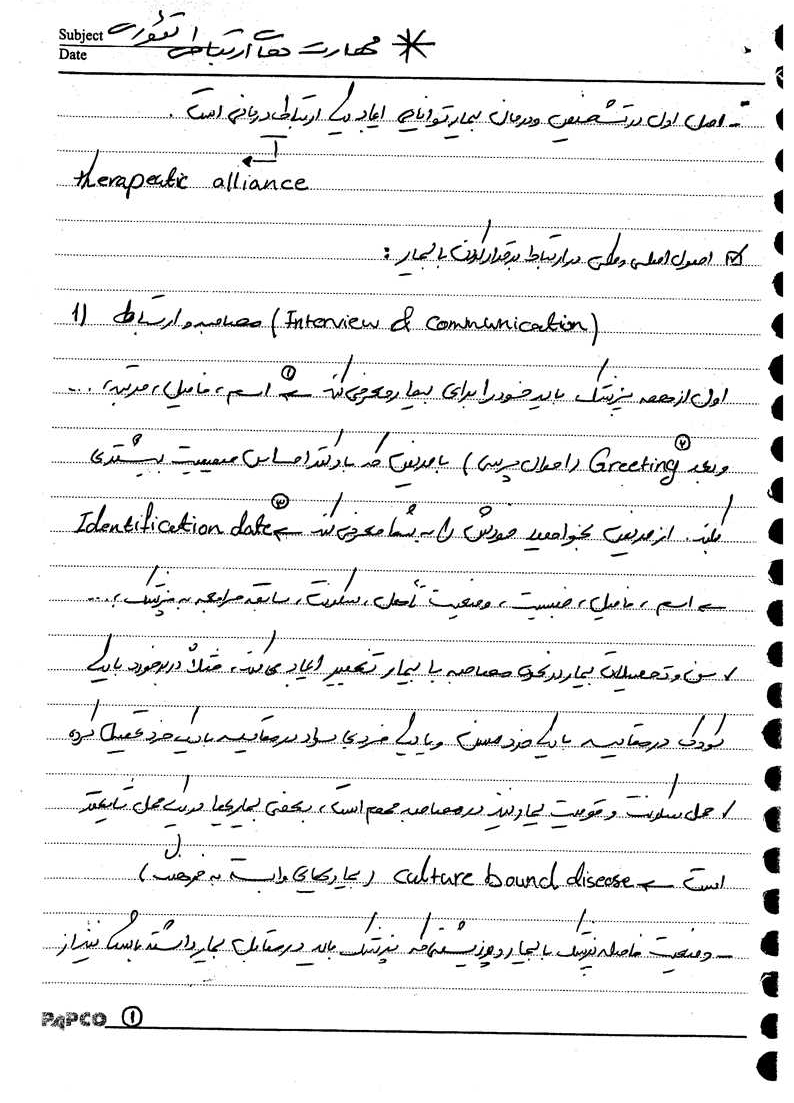 Subject
Date
* مهارت های ارتباطی ( تئوری
- اصل اول در تشخیص و درمان بیمار توانایی ایجاد یک ارتباط درمانی است.
therapeutic alliance
☑ اصول اصلی و کلی در ارتباط برقرار کردن با بیمار :
1) مصاحبه و ارتباط (Interview & communication)
اول از همه پزشک باید خود را برای بیمار معرفی کند ← ① اسم ، فامیل ، مرتبه ، ...
و بعد Greeting ② (احوال پرسی) با مریض که باو کند احساس صمیمیت بیشتری
کند. از مریض بخواهید خودش را به شما معرفی کند ← ③ Identification date
← اسم ، فامیل ، جنسیت ، وضعیت تأهل ، سکونت ، سابقه مراجعه به پزشک ، ...
✓ سن و تحصیلات بیمار در نحوی مصاحبه با بیمار تغییر ایجاد می کند ، مثلاً در برخورد با یک
کودک در مقایسه با یک فرد مسن و یا یک فرد بی سواد در مقایسه با یک فرد تحصیل کرده
✓ محل سکونت و قومیت بیمار نیز در مصاحبه مهم است ، بعضی بیماریها در یک محل شایعتر
است ← culture bound disease (بیماریهای وابسته به فرهنگ)
- وضعیت فاصله پزشک با بیمار و پوزیشنی که پزشک باید در مقابل بیمار داشته باشد نیز از
PAPCO ①